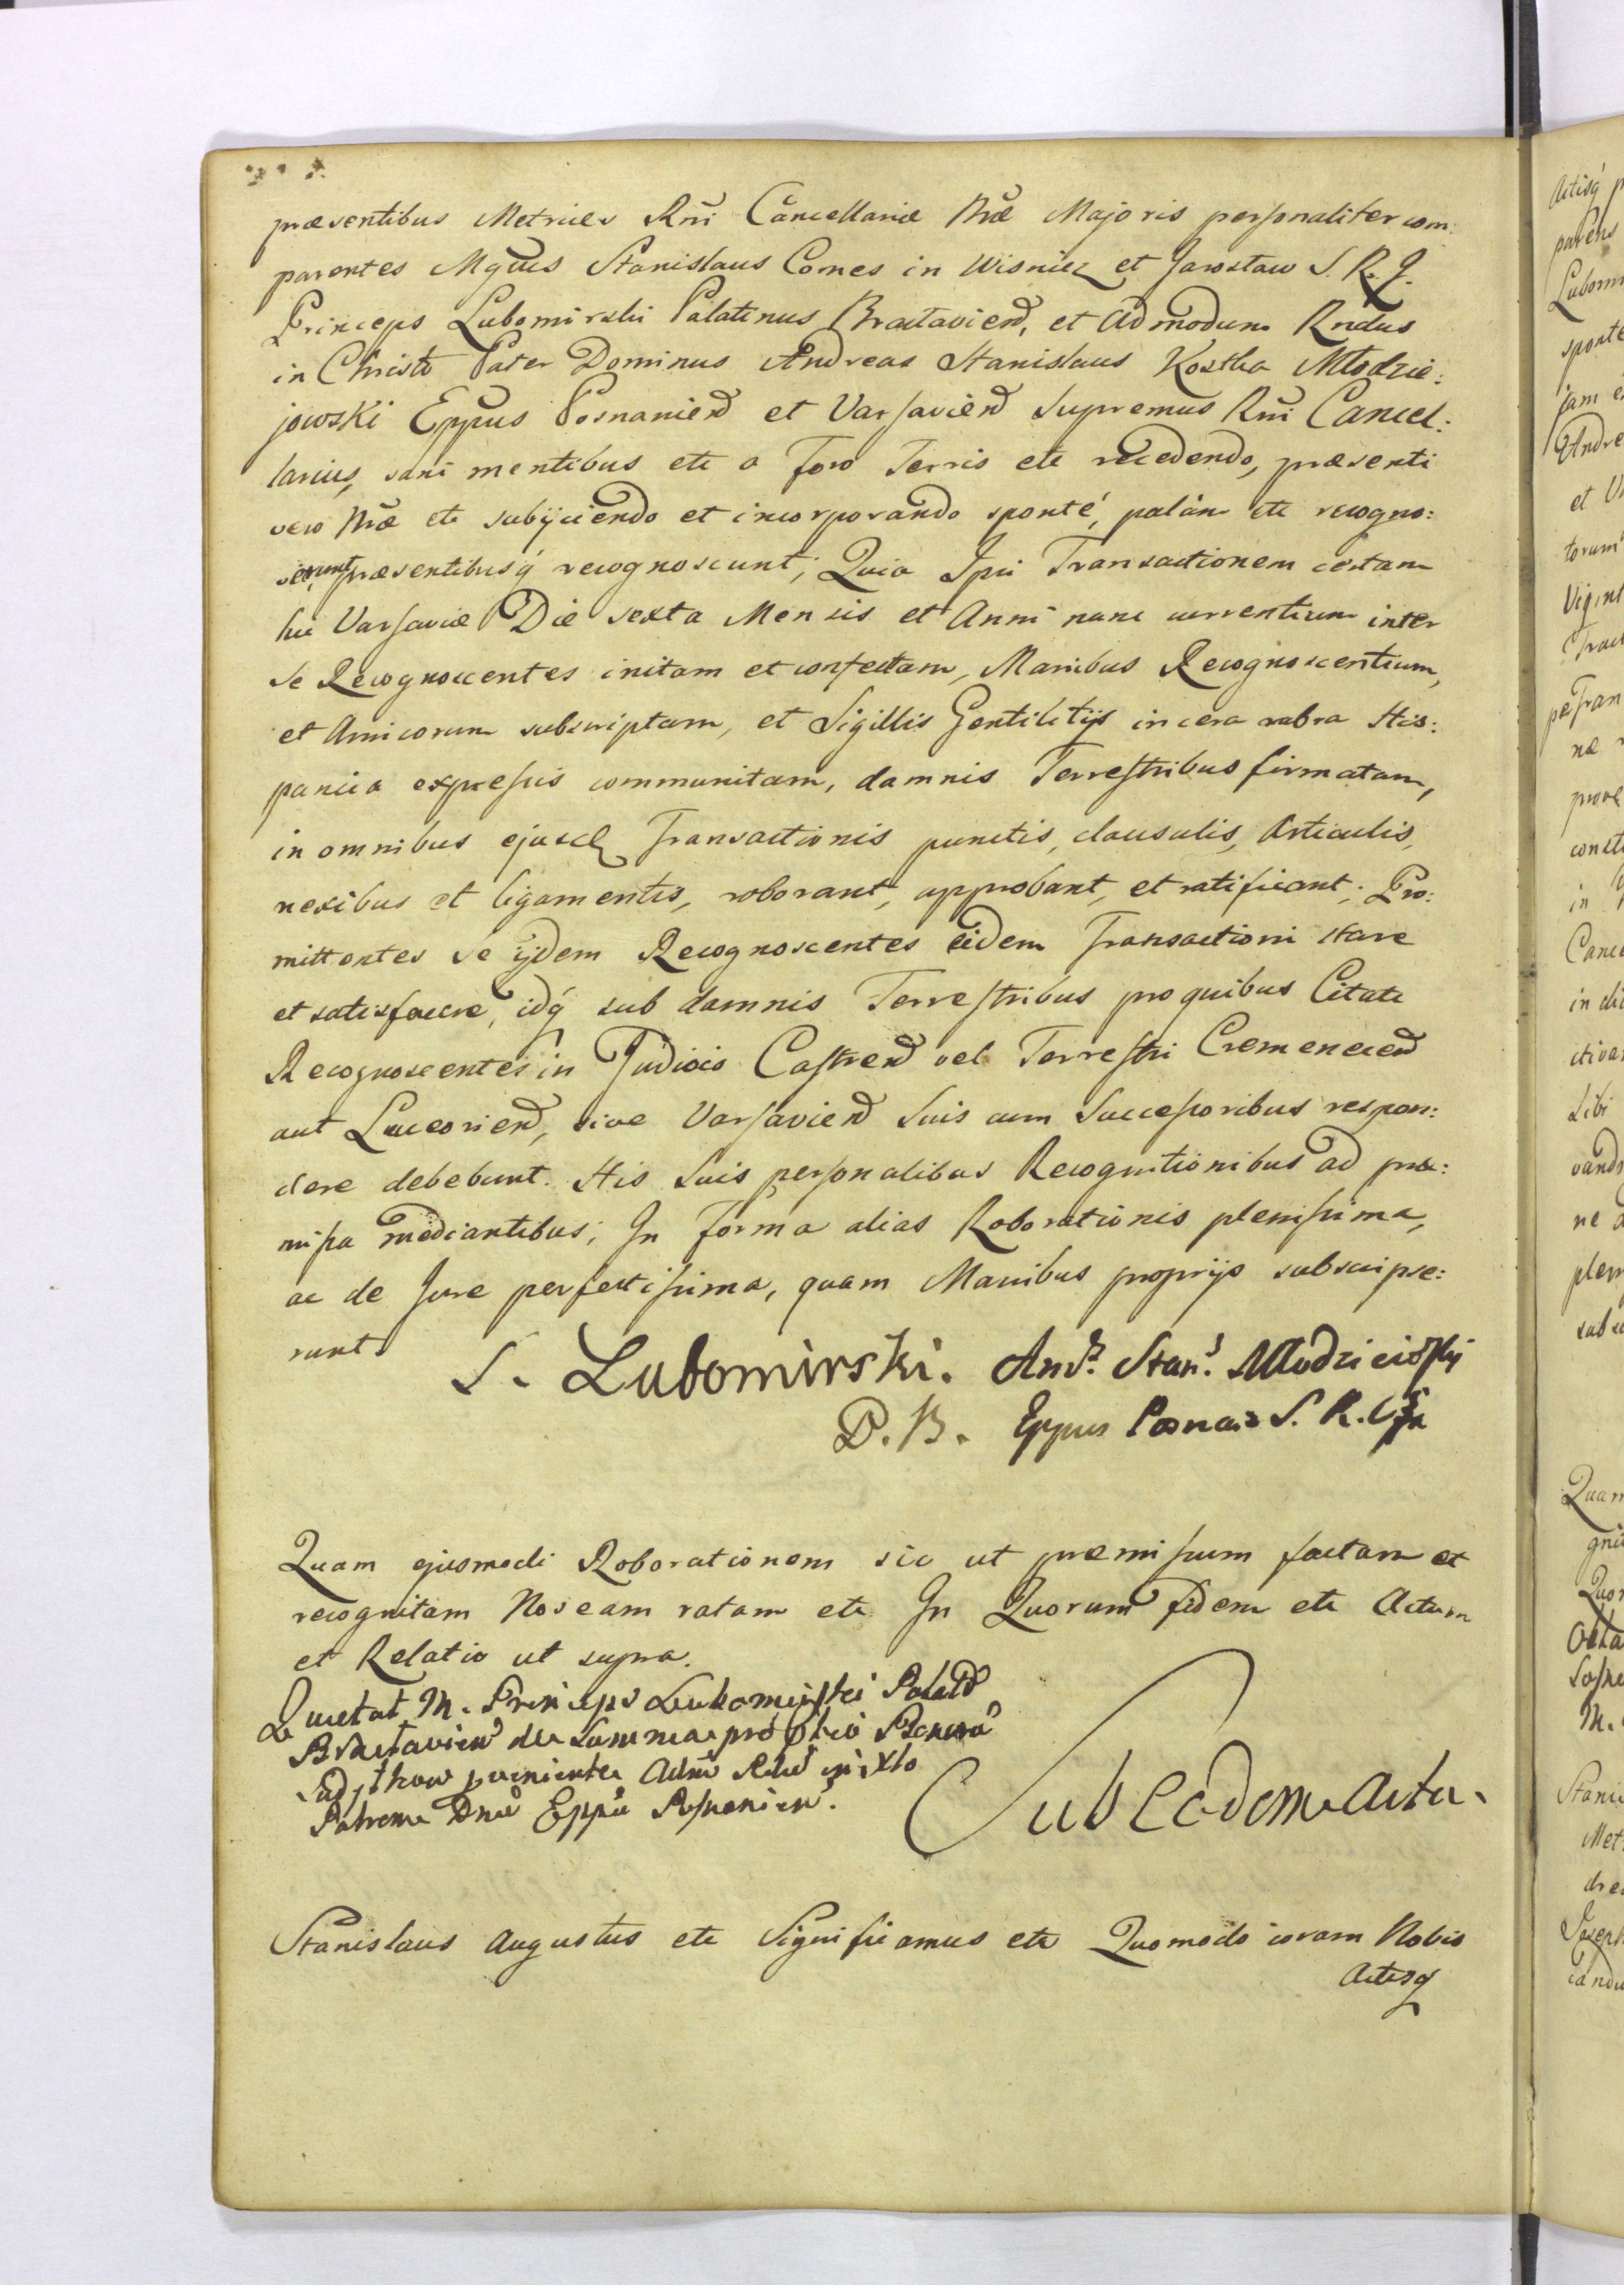 præsentibus Metrices Rñi Cancellariæ Nræ Majoris personaliter com:
parentes Mgũus Stanislaus Comes in Wisnicz et Jarosław S. R. J.
Princeps Lubomirski Palatinus Bractavień, et Admodum Rndus
in Christo Pater Dominus Andreas Stanislaus Kostka Młodzie:
jowski Eppus Posnanień et Varsavień Supremus Rñi Cancel:
larius, sani mentibus etc a Foro Terris etc recedendo, præsenti
vero Nræ etc subijciendo et incorporando sponté, palám etc recogno:
verunt, præsentibusq́ recognoscunt; Quia Ipsi Transactionem certam
hic Varsaviæ Die sexta Mensis et Anni nunc currentium inter
se Recognoscentes initam et confectam, Manibus Recognoscentium,
et Amicorum subscriptam, et Sigillis Gentilitijs in cera rubra His:
panica expressis communitam, damnis Terrestribus firmatam,
in omnibus ejusd Transactionis punctis, clausulis, Articulis,
nexibus et ligamentis, roborant, approbant, et ratificant; Pro:
mittentes se ijdem Recognoscentes eidem Transactioni stare
et satisfacere, idq́ sub damnis Terrestribus pro quibus Citati
Recognoscentes in Judicio Castreń vel Terrestri Cremenecen
aut Luceorień, sive Varsavień Suis cum Successoribus respon:
dere debebunt. His Suis personalibus Recognitionibus ad præ:
missa mediantibus; In Forma alias Roborationis plenissima,
ac de Jure perfectissima, quam Manibus proprijs subscripse:
runt.
S. Lubomirski. And. Stan. Młodzieioski
P. B. Eppus Posna: S. R. C
Quam ejusmodi Roborationem sic ut præmissum factam et
recognitam Nos eam ratam etc In Quorum fidem etc Actum
et Relatio ut supra.
Quietat M. Princeps Lubomirski Palat
Bractavien de Summa pro
Patrem Dnũ Eppũ Posnanien.
Sub Eadem Actu.
Stanislaus Augustus etc Significamus etc Quomodo coram Nobis
Actisq